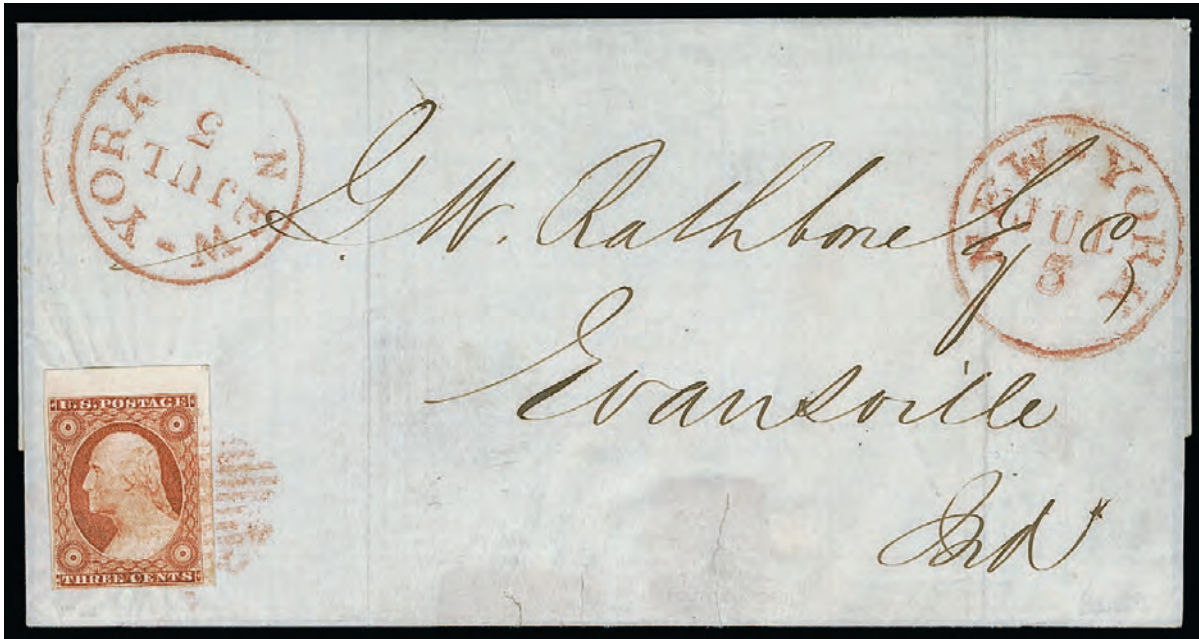 NEW-YORK
JUL
5
NEW-YORK
JUL
5
G W. Rathbone Esq
Evansville
Ind
U.S. POSTAGE
THREE CENTS